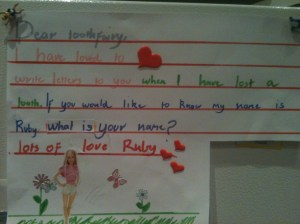 Dear toothfairy,
I have loved to
write letters to you when I have lost a
tooth. If you would like to know my name is
Ruby what is your name?
lots of love Ruby